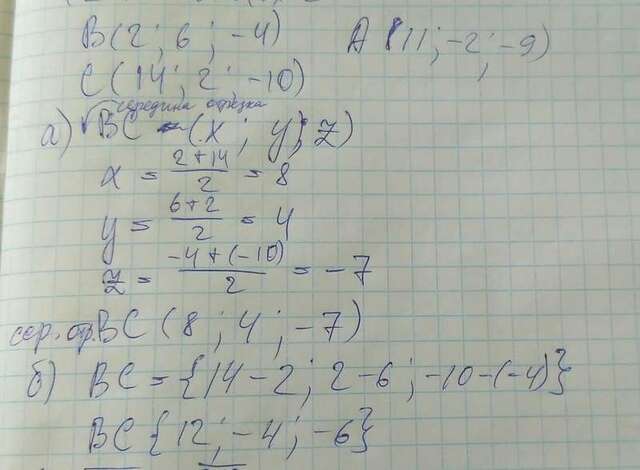 B(2; 6; -4) A(11; -2; -9)
C(14; 2; -10)
середина отрезка
а) BC (x; y; z)
x = \frac{2+14}{2} = 8
y = \frac{6+2}{2} = 4
z = \frac{-4+(-10)}{2} = -7
сер. отр. BC (8; 4; -7)
б) BC = {14-2; 2-6; -10-(-4)}
BC {12; -4; -6}